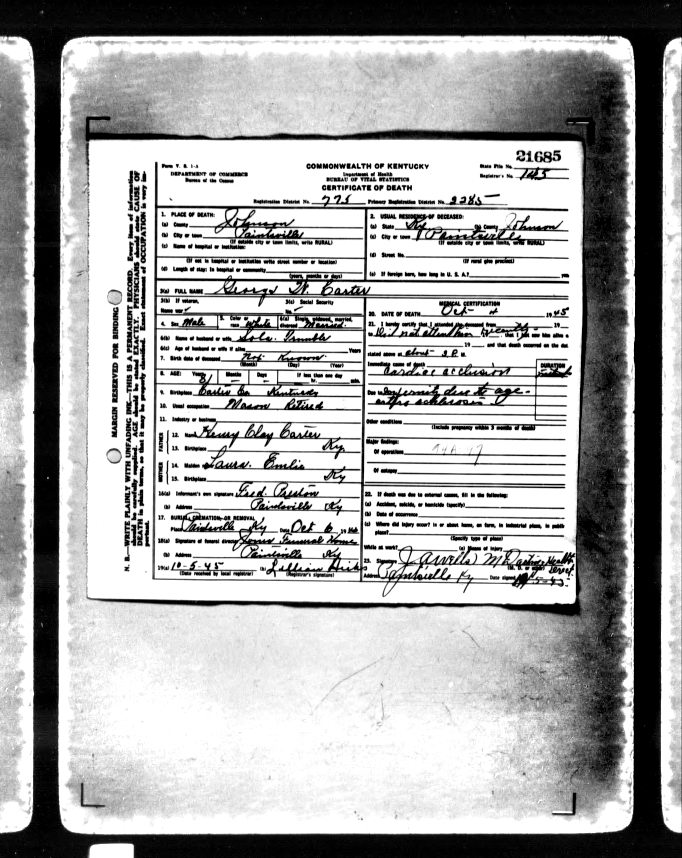 21685
Form V. S. 1-A
COMMONWEALTH OF KENTUCKY
State File No.
DEPARTMENT OF COMMERCE
Department of Health
Registrar's No. 145
Bureau of the Census
BUREAU OF VITAL STATISTICS
CERTIFICATE OF DEATH
Registration District No. 775 Primary Registration District No. 2285
MARGIN RESERVED FOR BINDING
N. B.—WRITE PLAINLY WITH UNFADING INK—THIS IS A PERMANENT RECORD. Every item of information
should be carefully supplied. AGE should be stated EXACTLY. PHYSICIANS should state CAUSE OF
DEATH in plain terms, so that it may be properly classified. Exact statement of OCCUPATION is very im-
portant.
1. PLACE OF DEATH:
(a) County Johnson
(b) City or town Paintsville
(If outside city or town limits, write RURAL)
(c) Name of hospital or institution:
(If not in hospital or institution write street number or location)
(d) Length of stay: In hospital or community
(years, months or days)
2. USUAL RESIDENCE OF DECEASED:
(a) State Ky (b) County Johnson
(c) City or town Paintsville
(If outside city or town limits, write RURAL)
(d) Street No.
(If rural give precinct)
(e) If foreign born, how long in U. S. A.? yrs
3(a) FULL NAME George W. Carter
3(b) If veteran,
3(c) Social Security
Name war
No.
4. Sex Male
5. Color or race White
6(a) Single, widowed, married, divorced Married
6(b) Name of husband or wife Trimble
6(c) Age of husband or wife if alive Years
7. Birth date of deceased Not Known
(Month) (Day) (Year)
8. AGE: Years Months Days If less than one day
81 hr. min.
9. Birthplace Carter Co Kentucky
10. Usual occupation Mason Retired
11. Industry or business
FATHER
12. Name Henry Clay Carter
13. Birthplace Ky
MOTHER
14. Maiden Laura Emlie
15. Birthplace Ky
16(a) Informant's own signature Fred Preston
(b) Address Paintsville Ky
17. BURIAL, CREMATION, OR REMOVAL
Place Paintsville Ky Date Oct 6
18(a) Signature of funeral director Jones Funeral Home
(b) Address Paintsville Ky
19(a) 10-5-45 (b) Lillian
(Date received by local registrar) (Registrar's signature)
MEDICAL CERTIFICATION
20. DATE OF DEATH Oct 4 1945
21. I hereby certify that I attended the deceased from 19
to Did not attention recently, that I last saw him alive
19 and that death occurred on the date
stated above at about M.
Immediate cause of death
DURATION
Cardiac occlusion
Due to
due to age
Other conditions
(Include pregnancy within 3 months of death)
Major findings:
Of operations
Of autopsy
22. If death was due to external causes, fill in the following:
(a) Accident, suicide, or homicide (specify)
(b) Date of occurrence
(c) Where did injury occur? In or about home, on farm, in industrial place, in public
place?
(Specify type of place)
While at work? (e) Means of injury
23. Signature J A Wells M D
Address Paintsville Ky Date signed